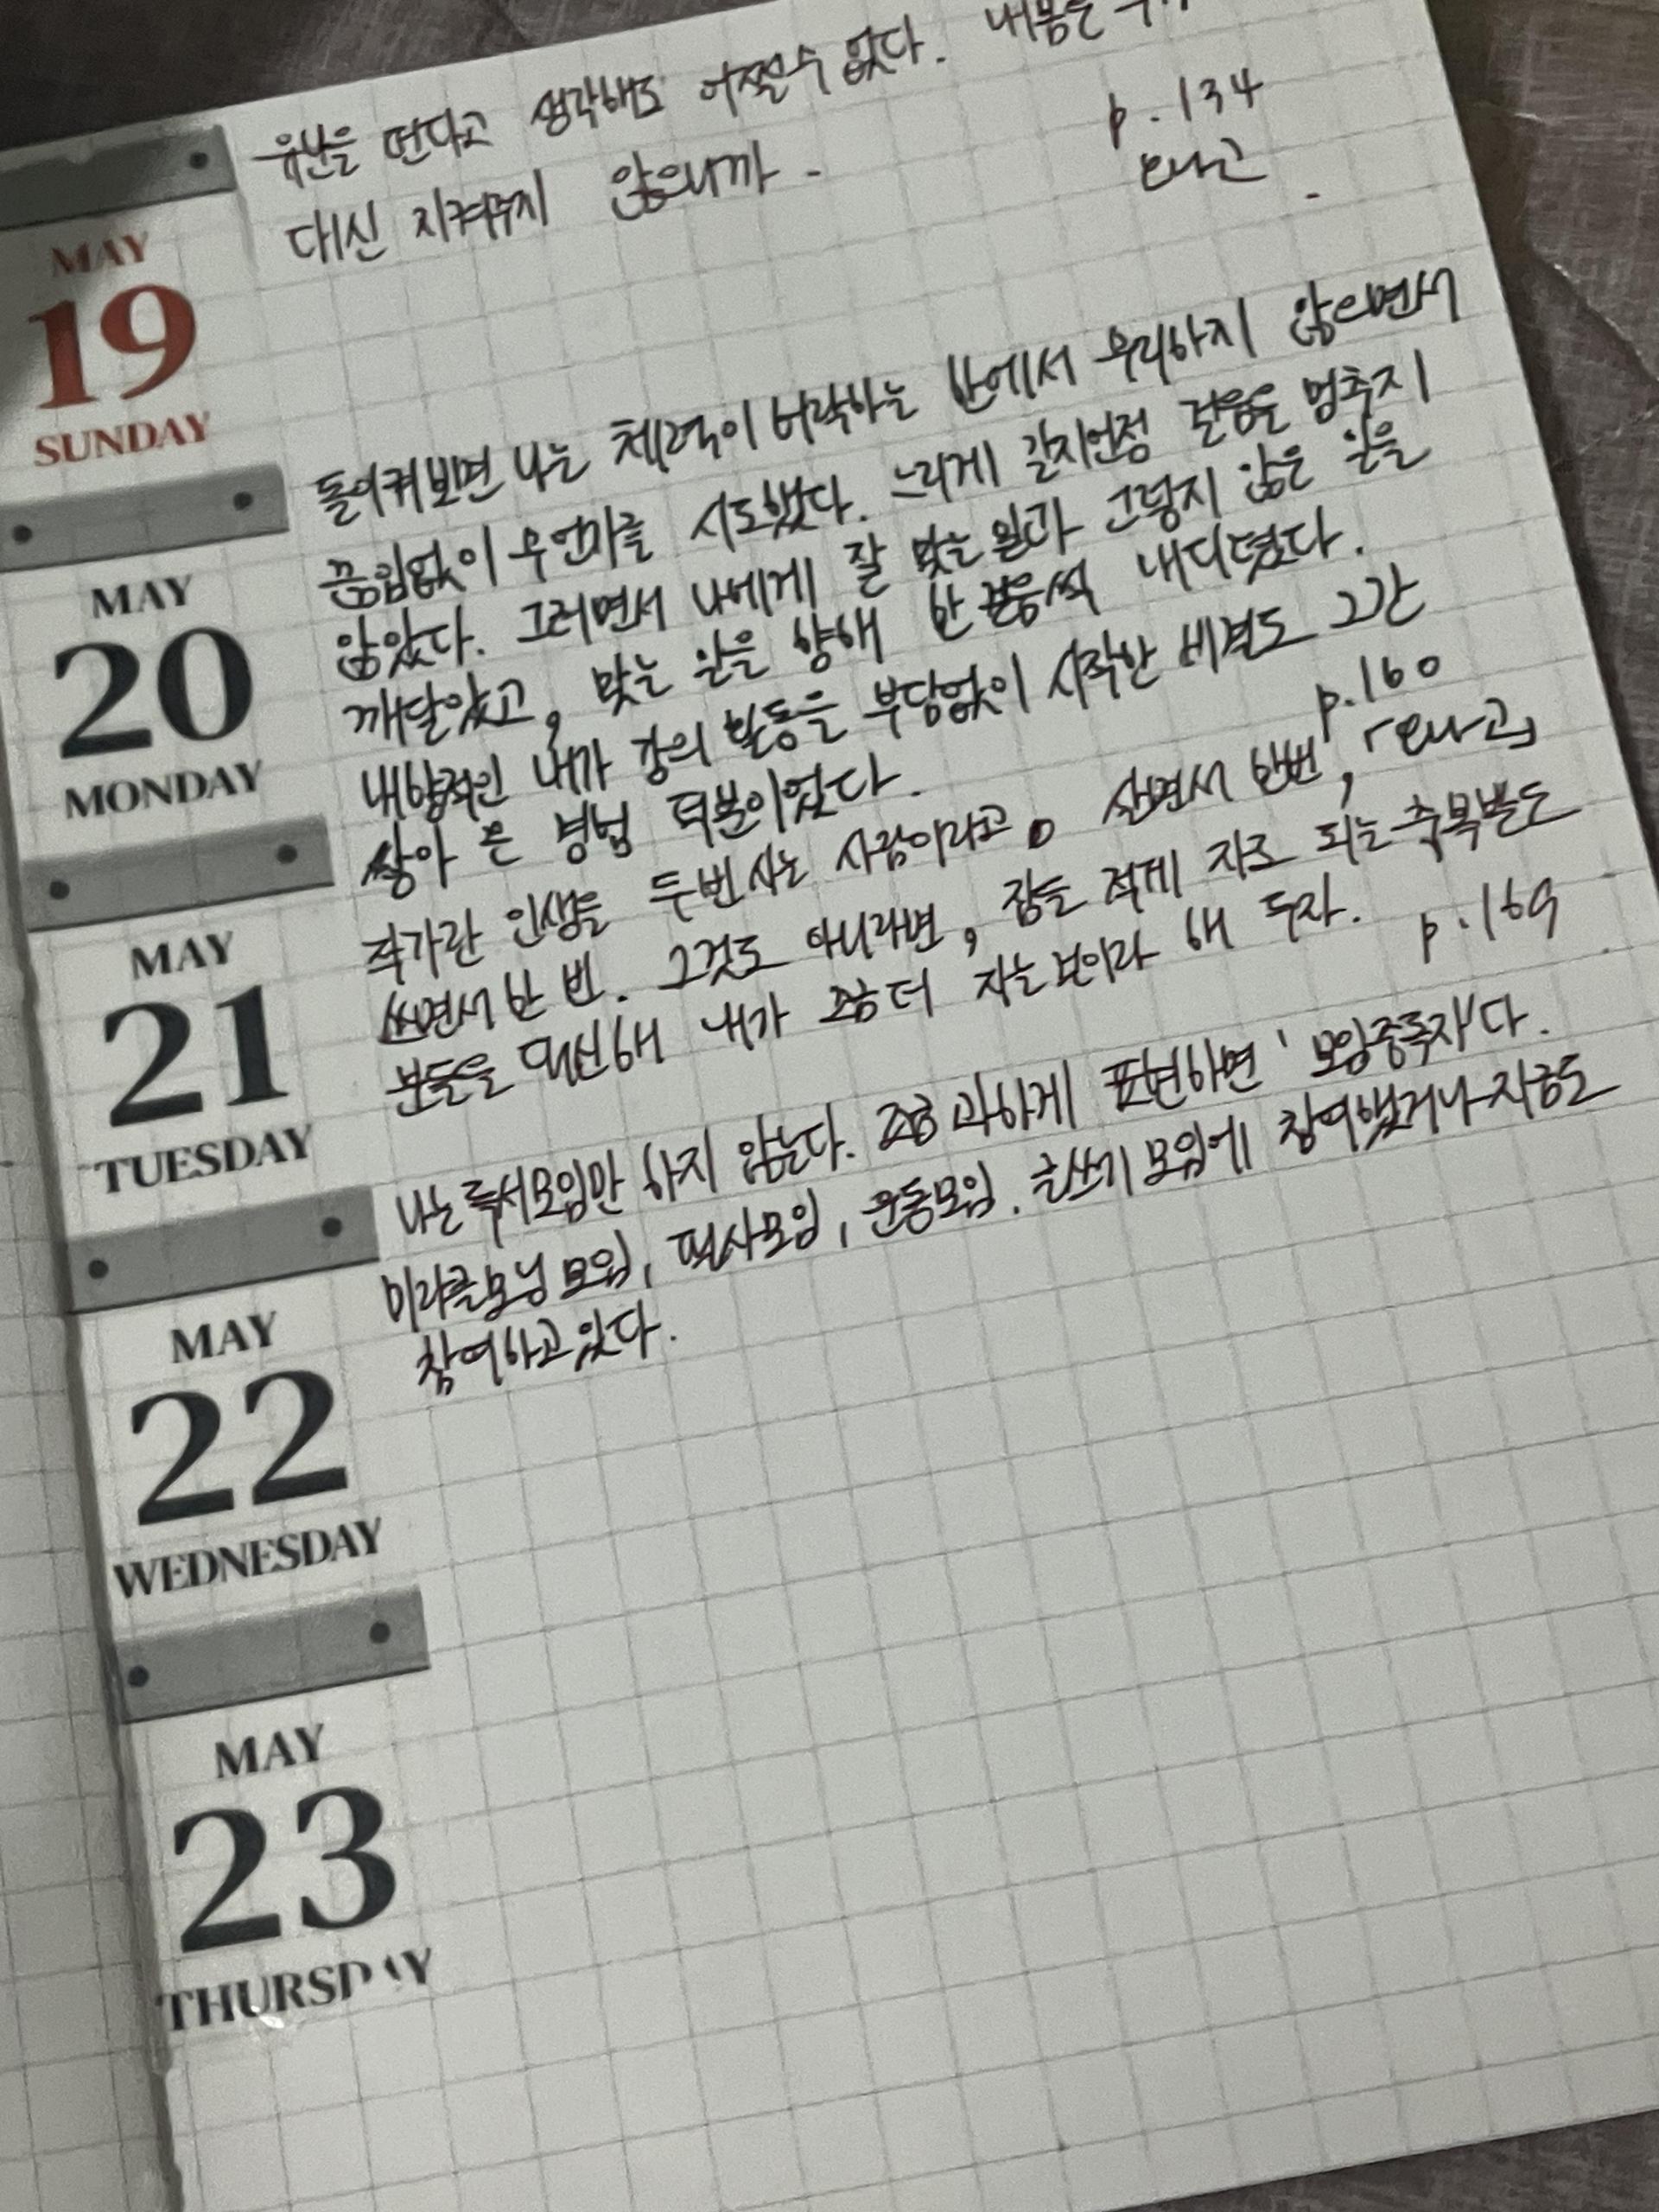 유난을 떤다고 생각해도 어쩔수 없다. 내몸은
대신 지켜주지 않으니까.
p.134
MAY
19
SUNDAY
돌이켜보면 나는 체력이 허락하는 한에서 무리하지 않으면서
끊임없이 무언가를 시도했다. 느리게 갈지언정 걸음을 멈추지
않았다. 그러면서 나에게 잘 맞는 일과 그렇지 않은 일을
깨달았고, 맞는 일을 향해 한 걸음씩 내디뎠다.
내향적인 내가 강의 활동을 부담없이 시작한 비결도 그간
쌓아 온 경험 덕분이었다.
p.160
MAY
20
MONDAY
작가란 인생을 두번 사는 사람이라고. 살면서 한번,
쓰면서 한 번. 그것도 아니라면, 잠을 적게 자도 되는 축복받은
분들을 대신해 내가 좀 더 자는 보이라 해 두자.
p.169
MAY
21
TUESDAY
나는 독서모임만 하지 않는다. 조금 과하게 표현하면 '모임중독자'다.
미라클모닝 모임, 필사모임, 운동모임, 글쓰기 모임에 참여했거나 지금도
참여하고 있다.
MAY
22
WEDNESDAY
MAY
23
THURSDAY